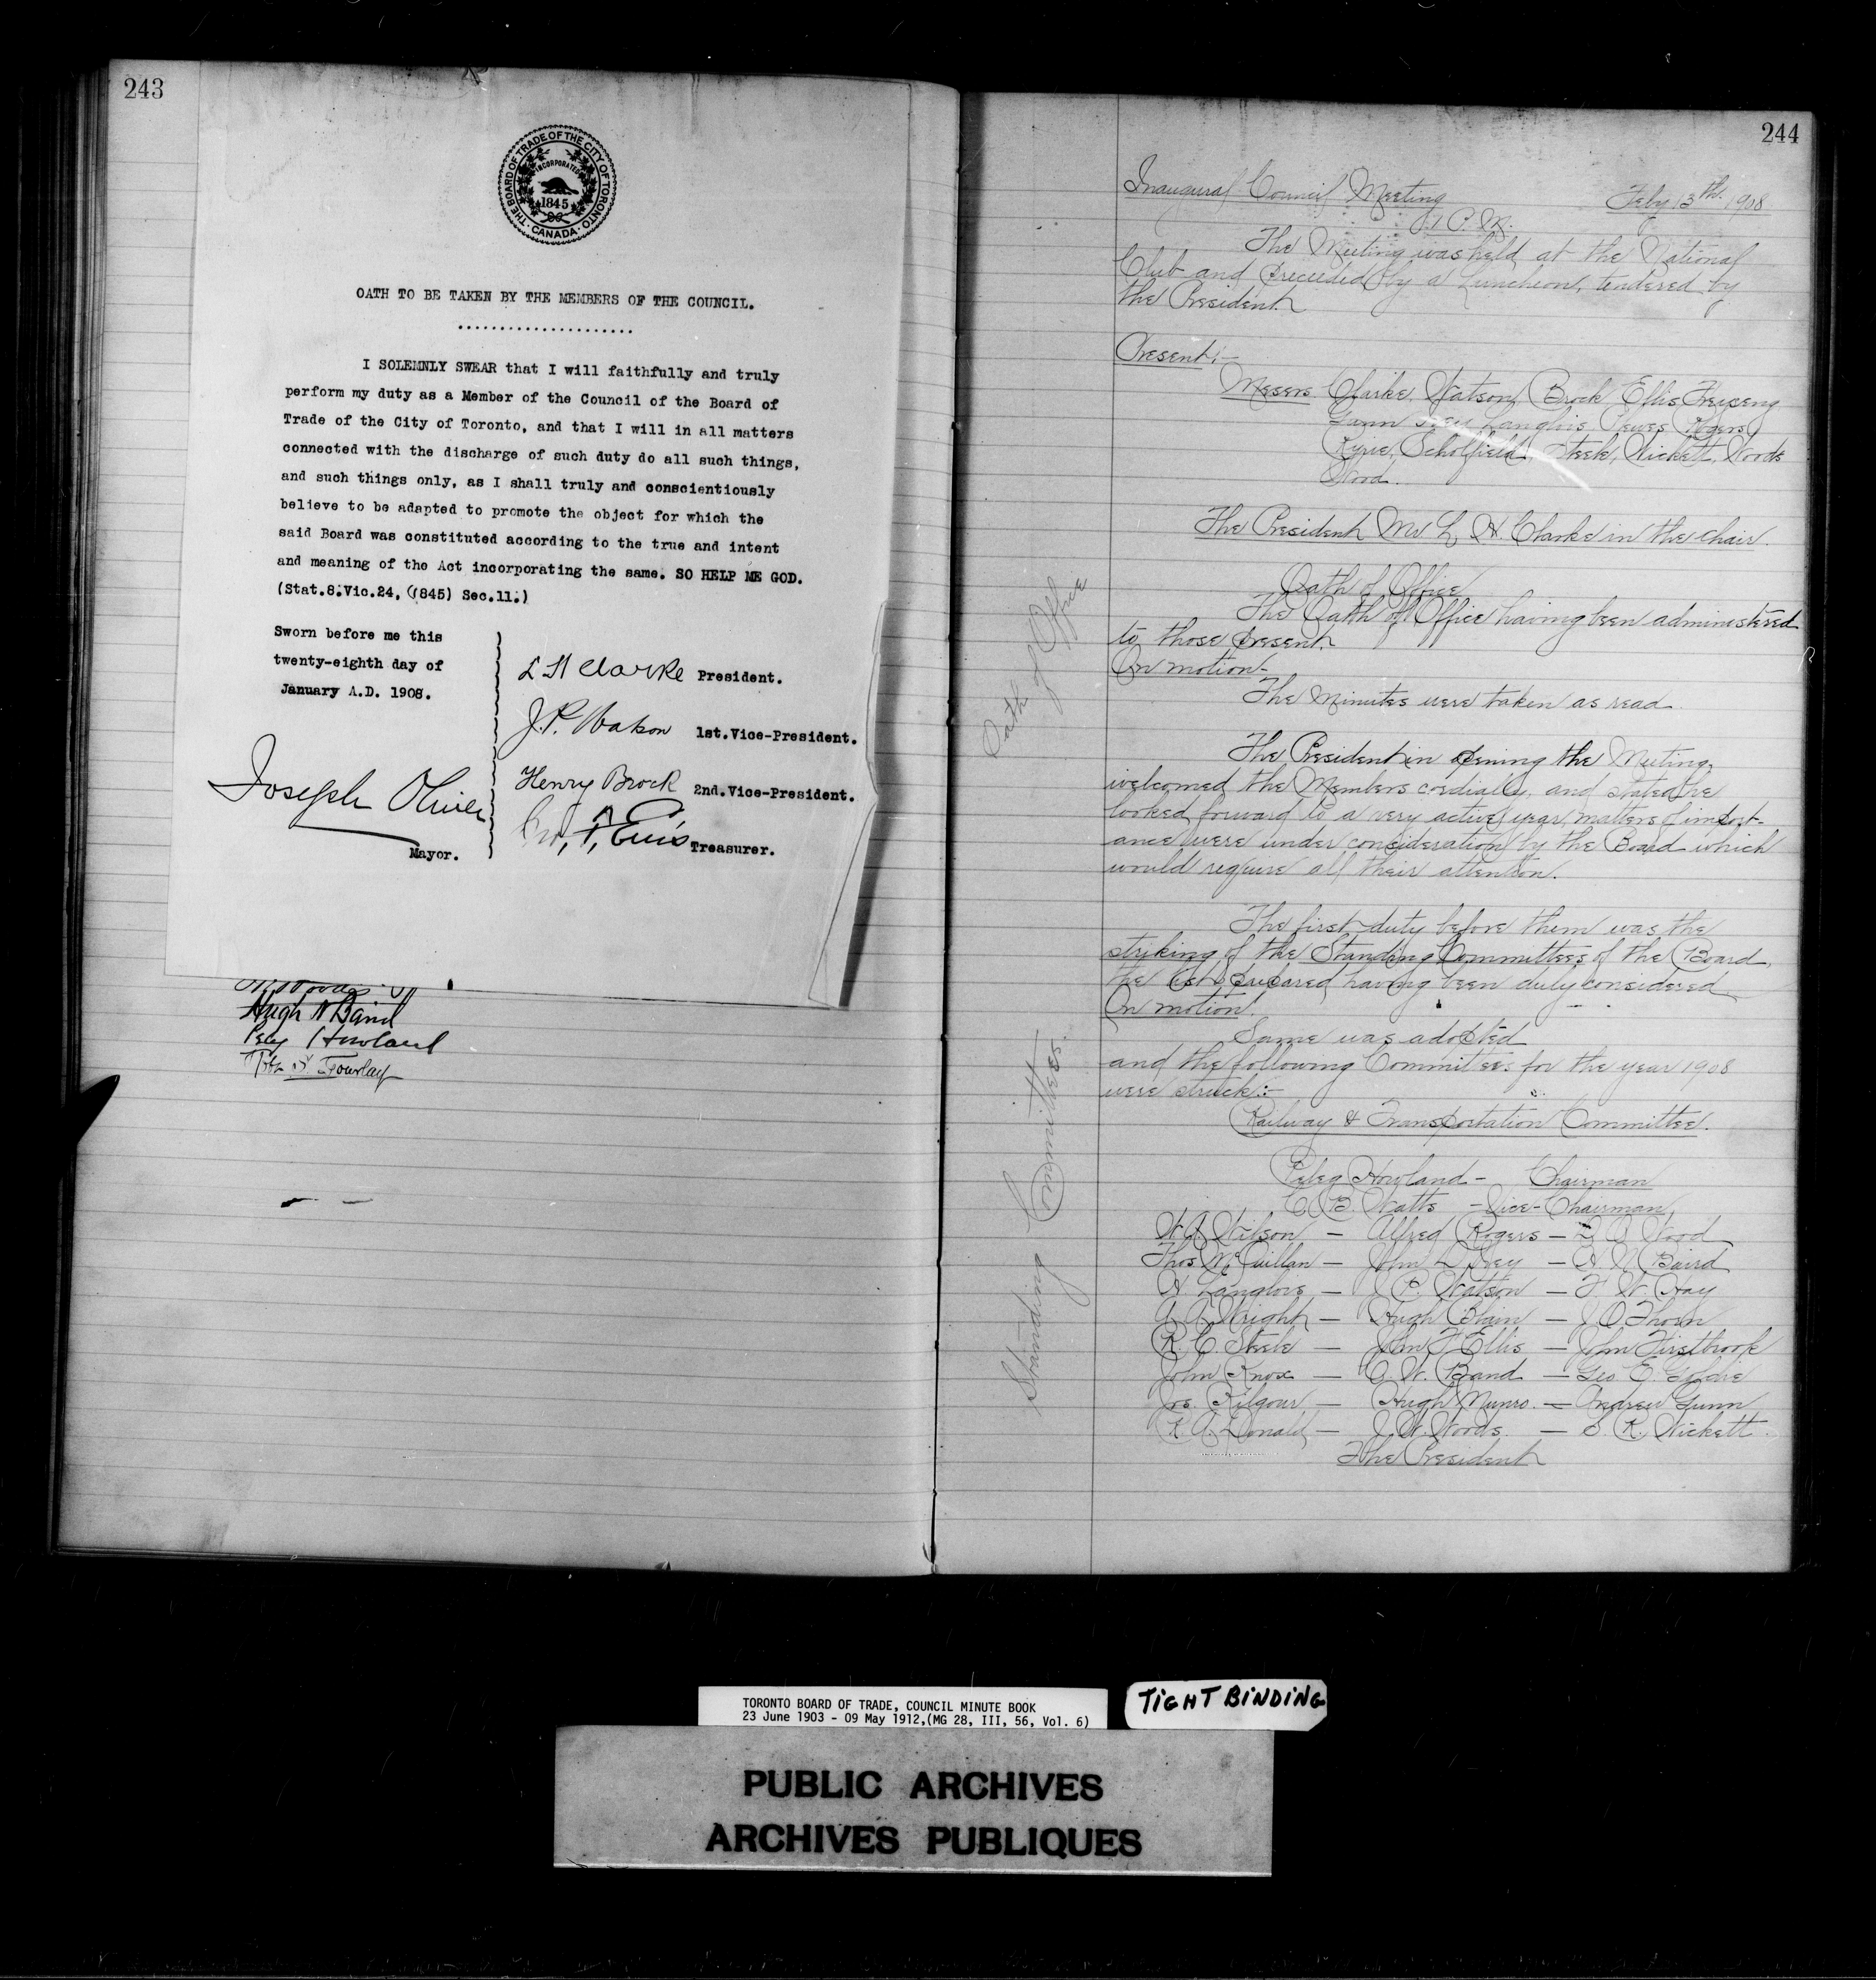 243
THE BOARD OF TRADE OF THE CITY OF TORONTO
INCORPORATED
1845
CANADA
OATH TO BE TAKEN BY THE MEMBERS OF THE COUNCIL.
.....................
I SOLEMNLY SWEAR that I will faithfully and truly
perform my duty as a Member of the Council of the Board of
Trade of the City of Toronto, and that I will in all matters
connected with the discharge of such duty do all such things,
and such things only, as I shall truly and conscientiously
believe to be adapted to promote the object for which the
said Board was constituted according to the true and intent
and meaning of the Act incorporating the same. SO HELP ME GOD.
(Stat.8.Vic.24, (1845) Sec.11.)
Sworn before me this
twenty-eighth day of
January A.D. 1908.
Joseph Oliver
Mayor.
L H Clarke President.
J.P. Watson 1st.Vice-President.
Henry Brock 2nd.Vice-President.
Ellis Treasurer.
Hugh N Baird
Peleg Howland
244
Inaugural Council Meeting Feby 13th. 1908
1 P.M.
The Meeting was held at the National
Club and preceeded by a Luncheon, tendered by
the President.
Present:-
Messrs Clarke, Watson, Brock Ellis
Gunn Ivey Langlois Rogers
Ryrie, Scholfield, Steele, Wickett, Woods
Wood.
The President Mr L. H. Clarke in the chair.
Oath of Office
Oath of Office
The Oath of Office having been administered
to those present.
On motion-
The Minutes were taken as read.
The President in opening the Meeting,
welcomed the Members cordially, and stated he
looked forward to a very active year, matters of import-
ance were under consideration by the Board which
would require all their attention.
Standing Committees.
The first duty before them was the
striking of the Standing Committees of the Board,
the list prepared having been duly considered
On motion.
Same was adopted
and the following Committees for the year 1908
were struck:-
Railway & Transportation Committee.
Peleg Howland - Chairman
C. B. Watts - Vice-Chairman
W. A. Wilson - Alfred Rogers - D. O. Wood
Thos McQuillan - John D. Ivey - H. N. Baird
H Langlois - J. P. Watson - F. W. Hay
A. A. Wright - Hugh Blain - J. O. Thorn
R. C. Steele - John F Ellis - John Firstbrook
John Knox - C. W. Band - Geo E. Goldie
Jos. Kilgour - Hugh Munro. - Andrew Gunn
K. A. Donald - J. W. Woods. - S. R. Wickett.
The President
TORONTO BOARD OF TRADE, COUNCIL MINUTE BOOK
23 June 1903 - 09 May 1912,(MG 28, III, 56, Vol. 6)
TIGHT BINDING
PUBLIC ARCHIVES
ARCHIVES PUBLIQUES